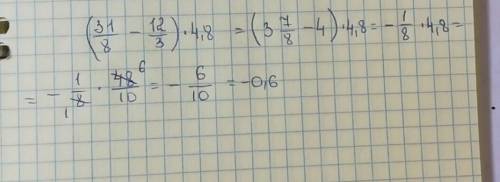 (31/8 − 12/3) · 4,8 = (3 7/8 − 4) · 4,8 = − 1/8 · 4,8 =
= − 1/8 1 · 48/10 6 = − 6/10 = −0,6